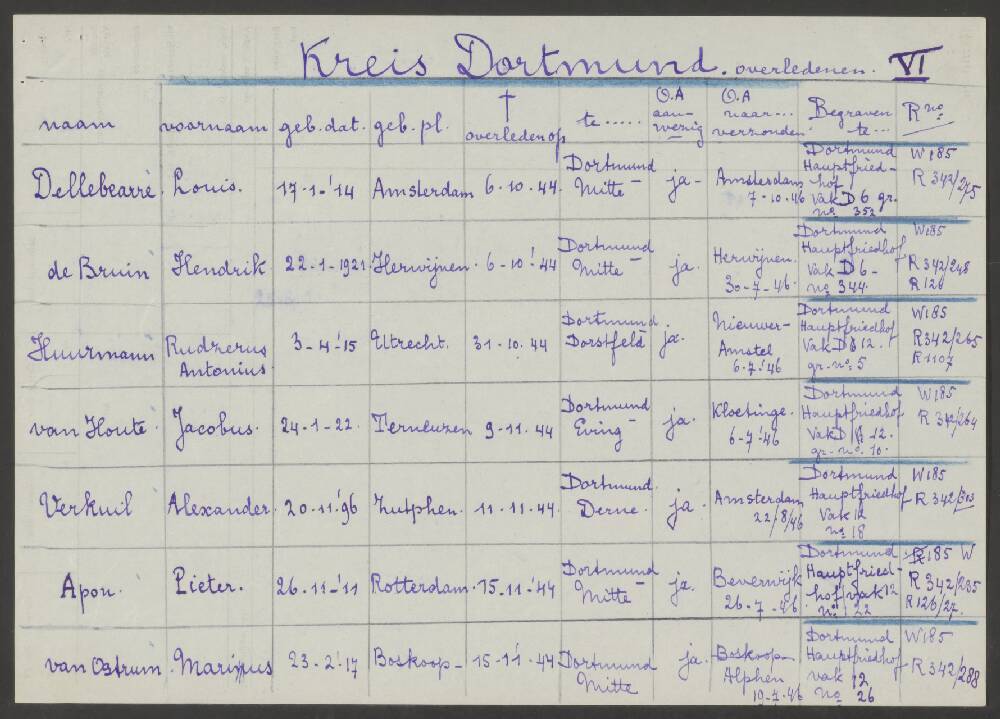 Kreis Dortmund. overledenen. VI
naam voornaam geb. dat. geb. pl. † overleden op te ..... O.A aanwezig O.A naar... verzonden Begraven te... R no.
Dellebearré. Louis. 17-1-'14 Amsterdam 6-10-44. Dortmund Mitte - ja - Amsterdam 7-10-46 Dortmund Hauptfriedhof vak D 6 gr. no. 352 W185 R 342/245
de Bruin Hendrik 22-1-1921. Herwijnen. 6-10-'44 Dortmund Mitte - ja. Herwijnen. 30-7-46. Dortmund Hauptfriedhof Vak D 6 - no. 344. W185 R 342/248 R 126
Huurmann Rudzerus Antonius. 3-4-'15 Utrecht. 31-10-44 Dortmund. Dorstfeld - ja. Nieuwer-Amstel 6-7-'46 Dortmund Hauptfriedhof Vak D 12. gr. no. 5 W185 R342/265 R1107
van Houte. Jacobus. 24-1-22. Terneuzen 9-11-44 Dortmund Eving - ja. Kloetinge. 6-7-'46 Dortmund Hauptfriedhof Vak D 12. gr. no. 10. W185 R 342/264
Verkuil Alexander. 20-11-'96 Zutphen. 11-11-44. Dortmund. Derne. ja. Amsterdam 22/8/46 Dortmund Hauptfriedhof Vak 12 no. 18 W185 R 342/
Apon. Pieter. 26-11-'11 Rotterdam. 15-11-'44 Dortmund Mitte - ja. Beverwijk 26-7-46. Dortmund Hauptfriedhof vak 12 no. 22 185 W R 342/285 R 126/27.
van Ostrum. Marinus 23-2-'17 Boskoop - 15-11-'44 Dortmund Mitte ja. Boskoop - Alphen 19-7-46 Dortmund Hauptfriedhof vak 12 no. 26 W185 R 342/288